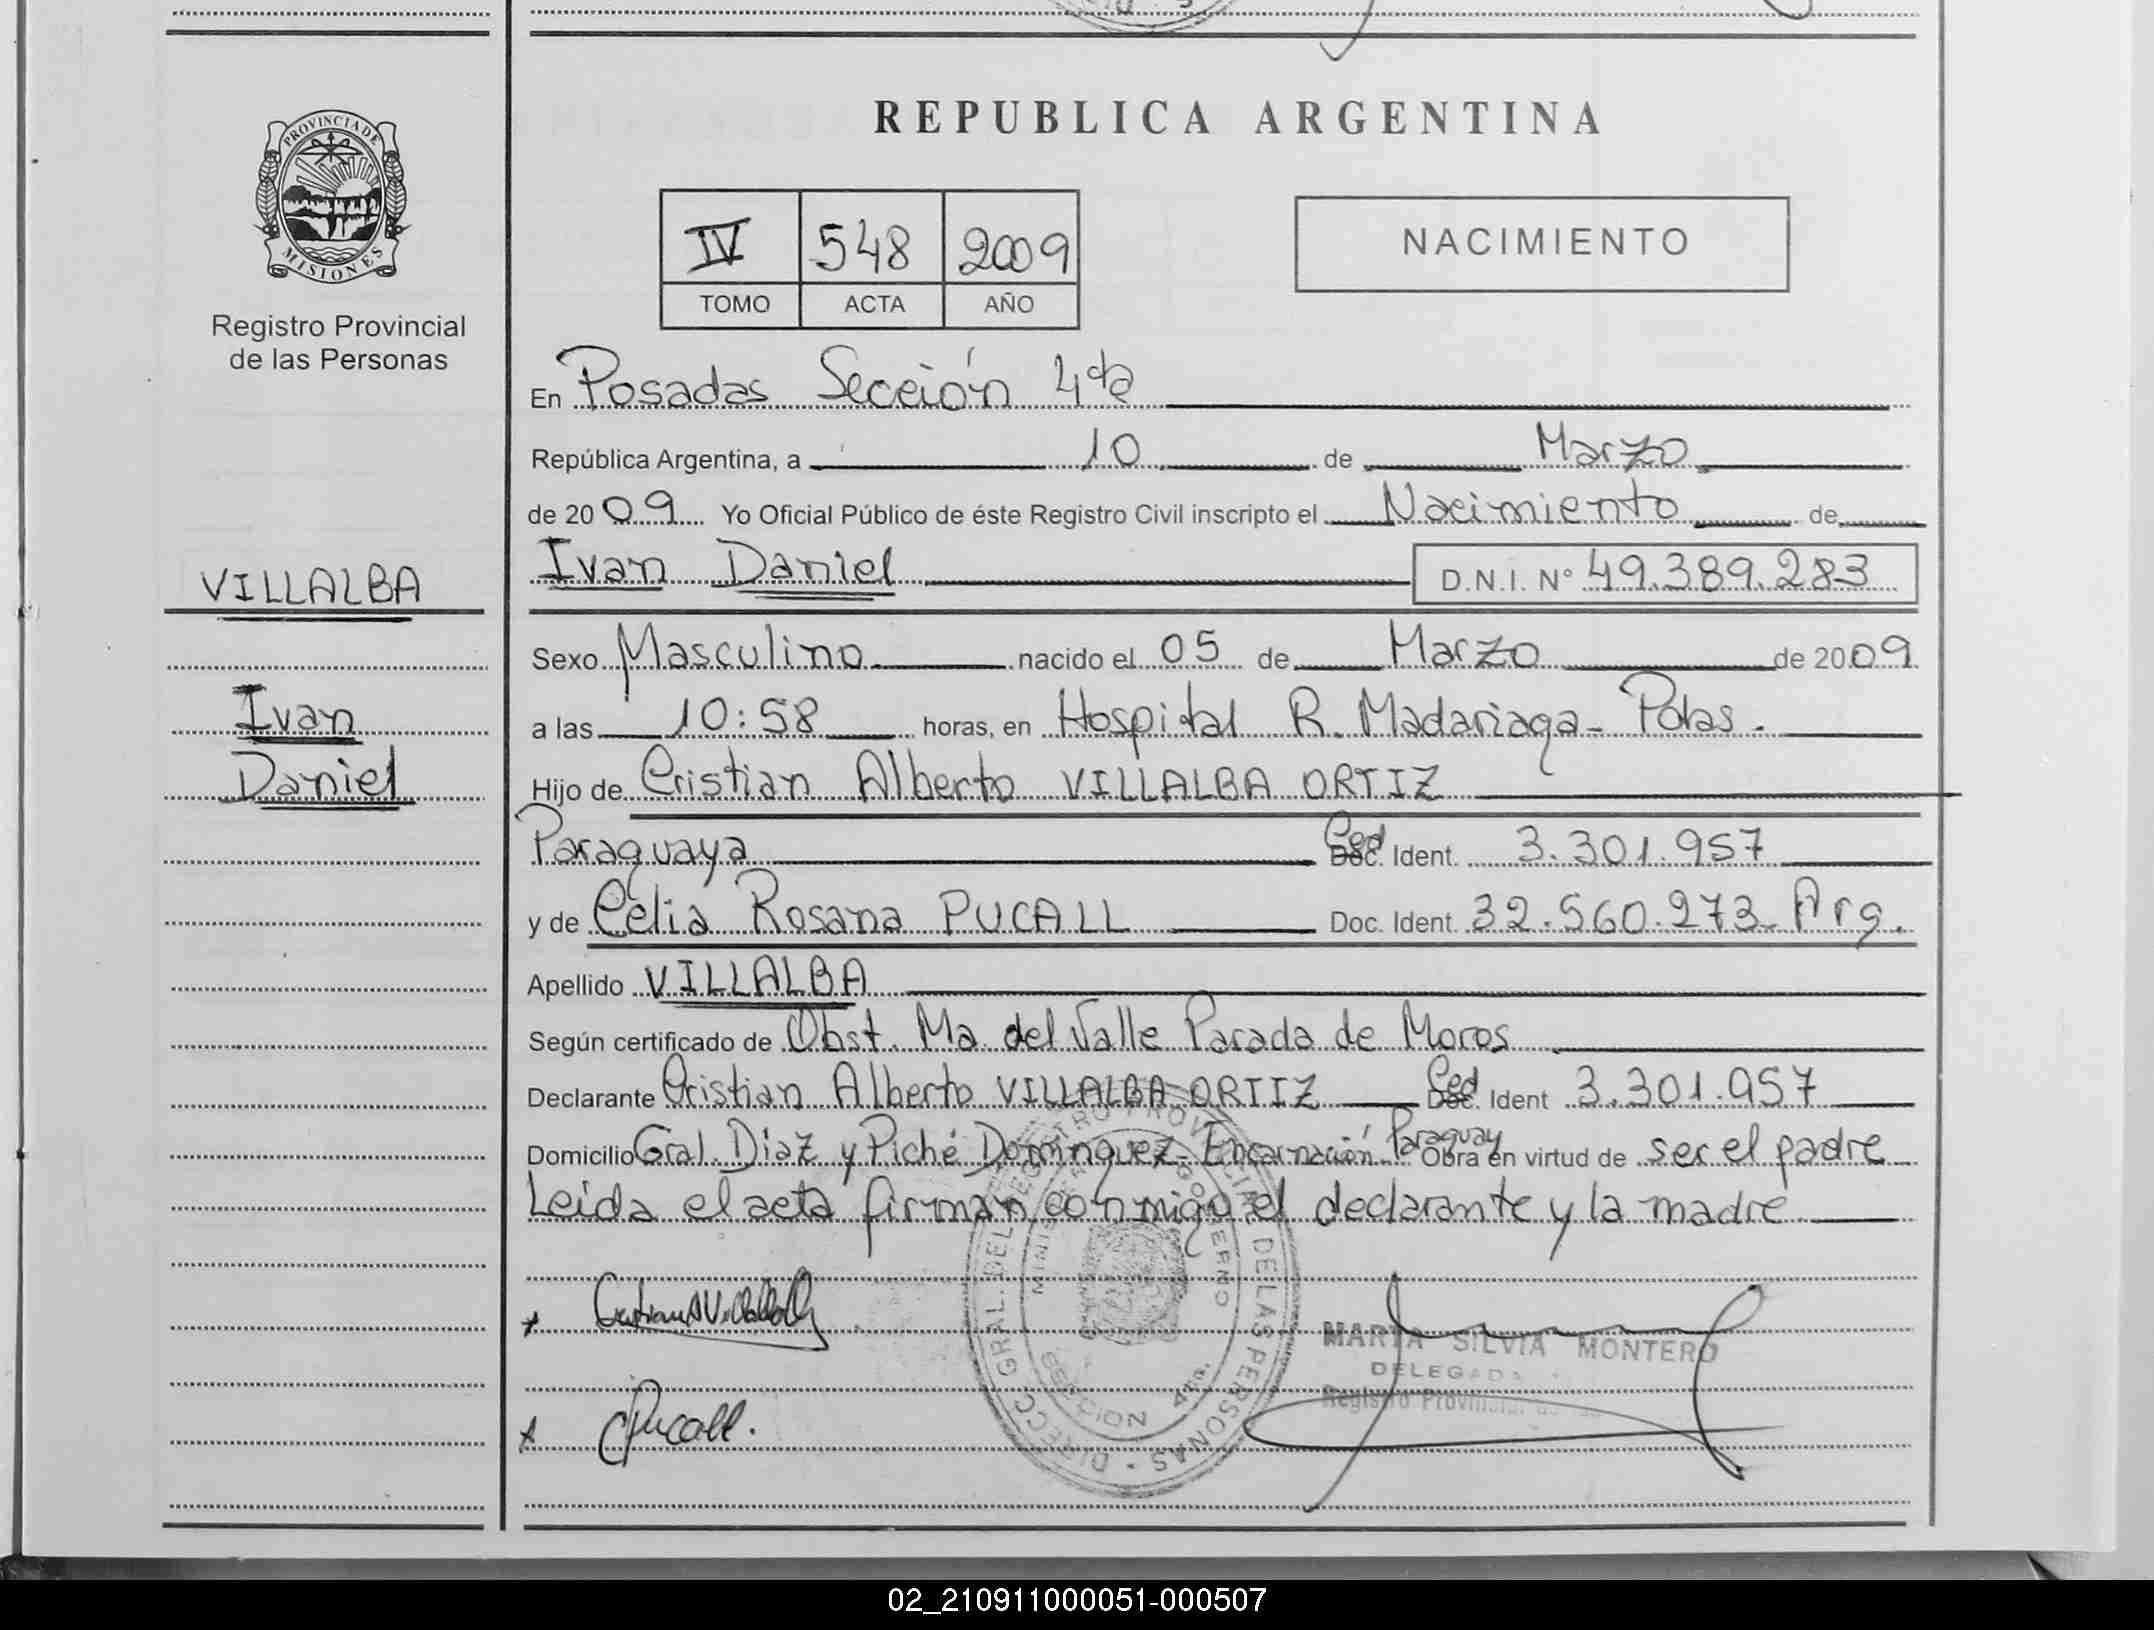 PROVINCIA DE
MISIONES
Registro Provincial
de las Personas
VILLALBA
Ivan
Daniel
REPUBLICA ARGENTINA
IV 548 2009
TOMO ACTA AÑO
NACIMIENTO
En Posadas Sección 4ta
República Argentina, a 10 de Marzo
de 2009 Yo Oficial Público de éste Registro Civil inscripto el Nacimiento de
Ivan Daniel D.N.I. N° 49.389.283
Sexo Masculino nacido el 05 de Marzo de 2009
a las 10:58 horas, en Hospital R. Madariaga - Pdas.
Hijo de Cristian Alberto VILLALBA ORTIZ
Paraguaya Ced Ident. 3.301.957
y de Celia Rosana PUCALL Doc. Ident. 32.560.273 - Arg.
Apellido VILLALBA
Según certificado de Obst. Ma. del Valle Parada de Moros
Declarante Cristian Alberto VILLALBA ORTIZ Ced Ident 3.301.957
Domicilio Gral. Diaz y Piché Dominguez - Encarnación Paraguay Obra en virtud de ser el padre
Leida el acta firman conmigo el declarante y la madre
CPucall.
DIRECC. GRAL. DEL REGISTRO PROVINCIAL DE LAS PERSONAS
SECCION 4ta.
MARTA SILVIA MONTERO
DELEGADA
Registro Provincial
02_210911000051-000507